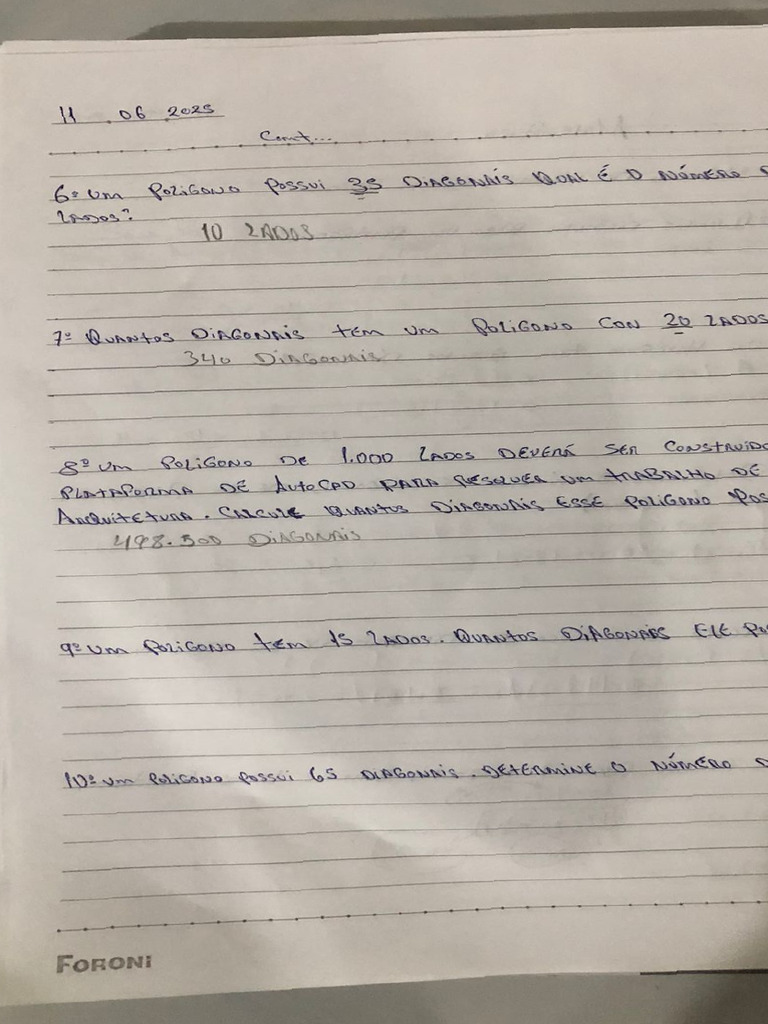 11 . 06 2025
Cont...
6º Um POLIGONO POSSUI 35 DIAGONAIS QUAL É O NÚMERO
LADOS?
10 LADOS
7º QUANTOS DIAGONAIS TEM UM POLIGONO CON 20 LADOS
340 DIAGONAIS
8º UM POLIGONO DE 1.000 LADOS DEVERÁ SER CONSTRUIDO
PLATAFORMA DE AUTOCAD PARA UM TRABALHO DE
ARQUITETURA. CALCULE QUANTOS DIAGONAIS ESSE POLIGONO POS
498.500 DIAGONAIS
9º UM POLIGONO TEM 15 LADOS. QUANTOS DIAGONAIS ELE PO
10º UM POLIGONO POSSUI 65 DIAGONAIS. DETERMINE O NÚMERO
FORONI